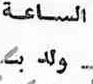 الساعة
ولد